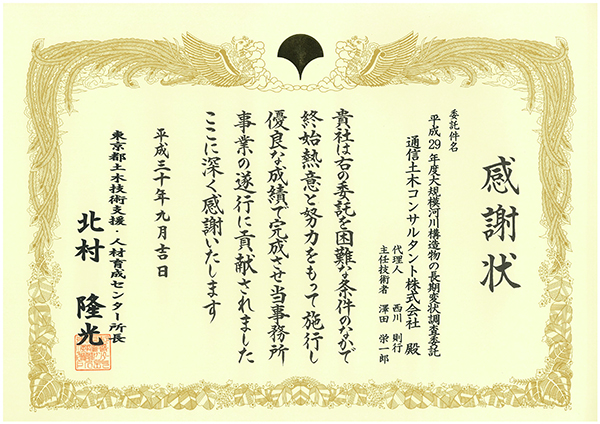 感謝状
委託件名
平成29年度大規模河川構造物の長期変状調査委託
通信土木コンサルタント株式会社 殿
代理人 西川 則行
主任技術者 澤田 栄一郎
貴社は右の委託を困難な条件のなかで
終始熱意と努力をもって施行し
優良な成績で完成させ当事務所
事業の遂行に貢献されました
ここに深く感謝いたします
平成三十年九月吉日
東京都土木技術支援・人材育成センター所長
北村 隆光